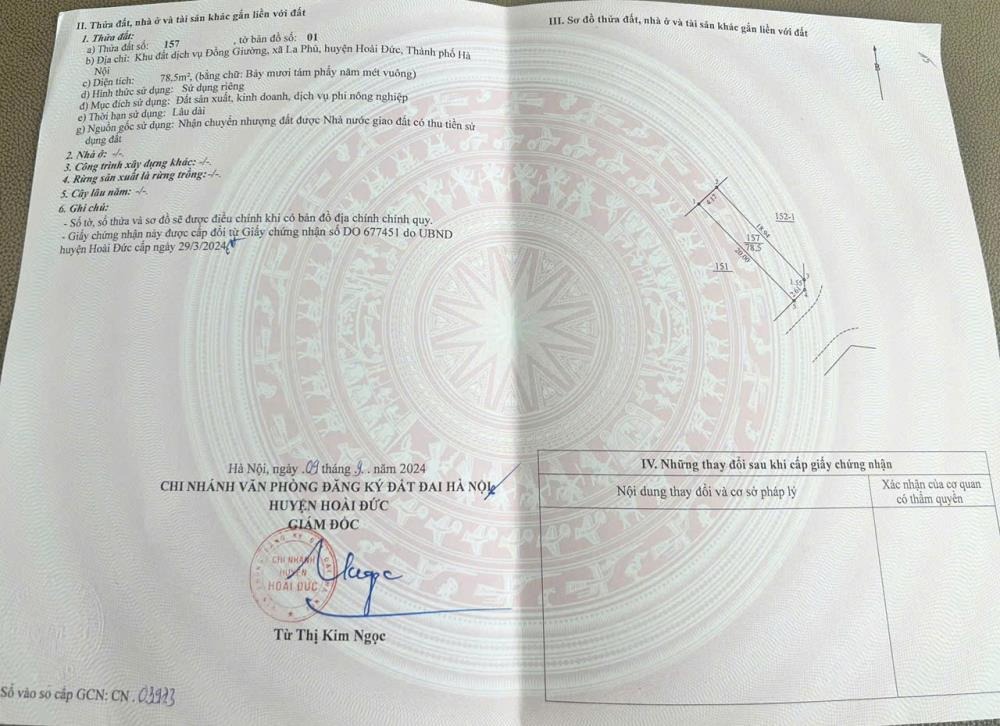 II. Thửa đất, nhà ở và tài sản khác gắn liền với đất
1. Thửa đất:
a) Thửa đất số: 157 , tờ bản đồ số: 01
b) Địa chỉ: Khu đất dịch vụ Đồng Giường, xã La Phù, huyện Hoài Đức, Thành phố Hà
Nội
c) Diện tích: 78,5m², (bằng chữ: Bảy mươi tám phẩy năm mét vuông)
d) Hình thức sử dụng: Sử dụng riêng
đ) Mục đích sử dụng: Đất sản xuất, kinh doanh, dịch vụ phi nông nghiệp
e) Thời hạn sử dụng: Lâu dài
g) Nguồn gốc sử dụng: Nhận chuyển nhượng đất được Nhà nước giao đất có thu tiền sử
dụng đất
2. Nhà ở: -/-.
3. Công trình xây dựng khác: -/-.
4. Rừng sản xuất là rừng trồng:-/-.
5. Cây lâu năm: -/-.
6. Ghi chú:
- Số tờ, số thửa và sơ đồ sẽ được điều chỉnh khi có bản đồ địa chính chính quy.
- Giấy chứng nhận này được cấp đổi từ Giấy chứng nhận số DO 677451 do UBND
huyện Hoài Đức cấp ngày 29/3/2024
Hà Nội, ngày .09 tháng .9. . năm 2024
CHI NHÁNH VĂN PHÒNG ĐĂNG KÝ ĐẤT ĐAI HÀ NỘI
HUYỆN HOÀI ĐỨC
GIÁM ĐỐC
CHI NHÁNH
HUYỆN
HOÀI ĐỨC
Từ Thị Kim Ngọc
Số vào sổ cấp GCN: CN .03973
III. Sơ đồ thửa đất, nhà ở và tài sản khác gắn liền với đất
B
1
2
4.17
152-1
18.94
157
78.5
20.00
151
3
1.55
4
2.61
5
IV. Những thay đổi sau khi cấp giấy chứng nhận
Nội dung thay đổi và cơ sở pháp lý
Xác nhận của cơ quan
có thẩm quyền